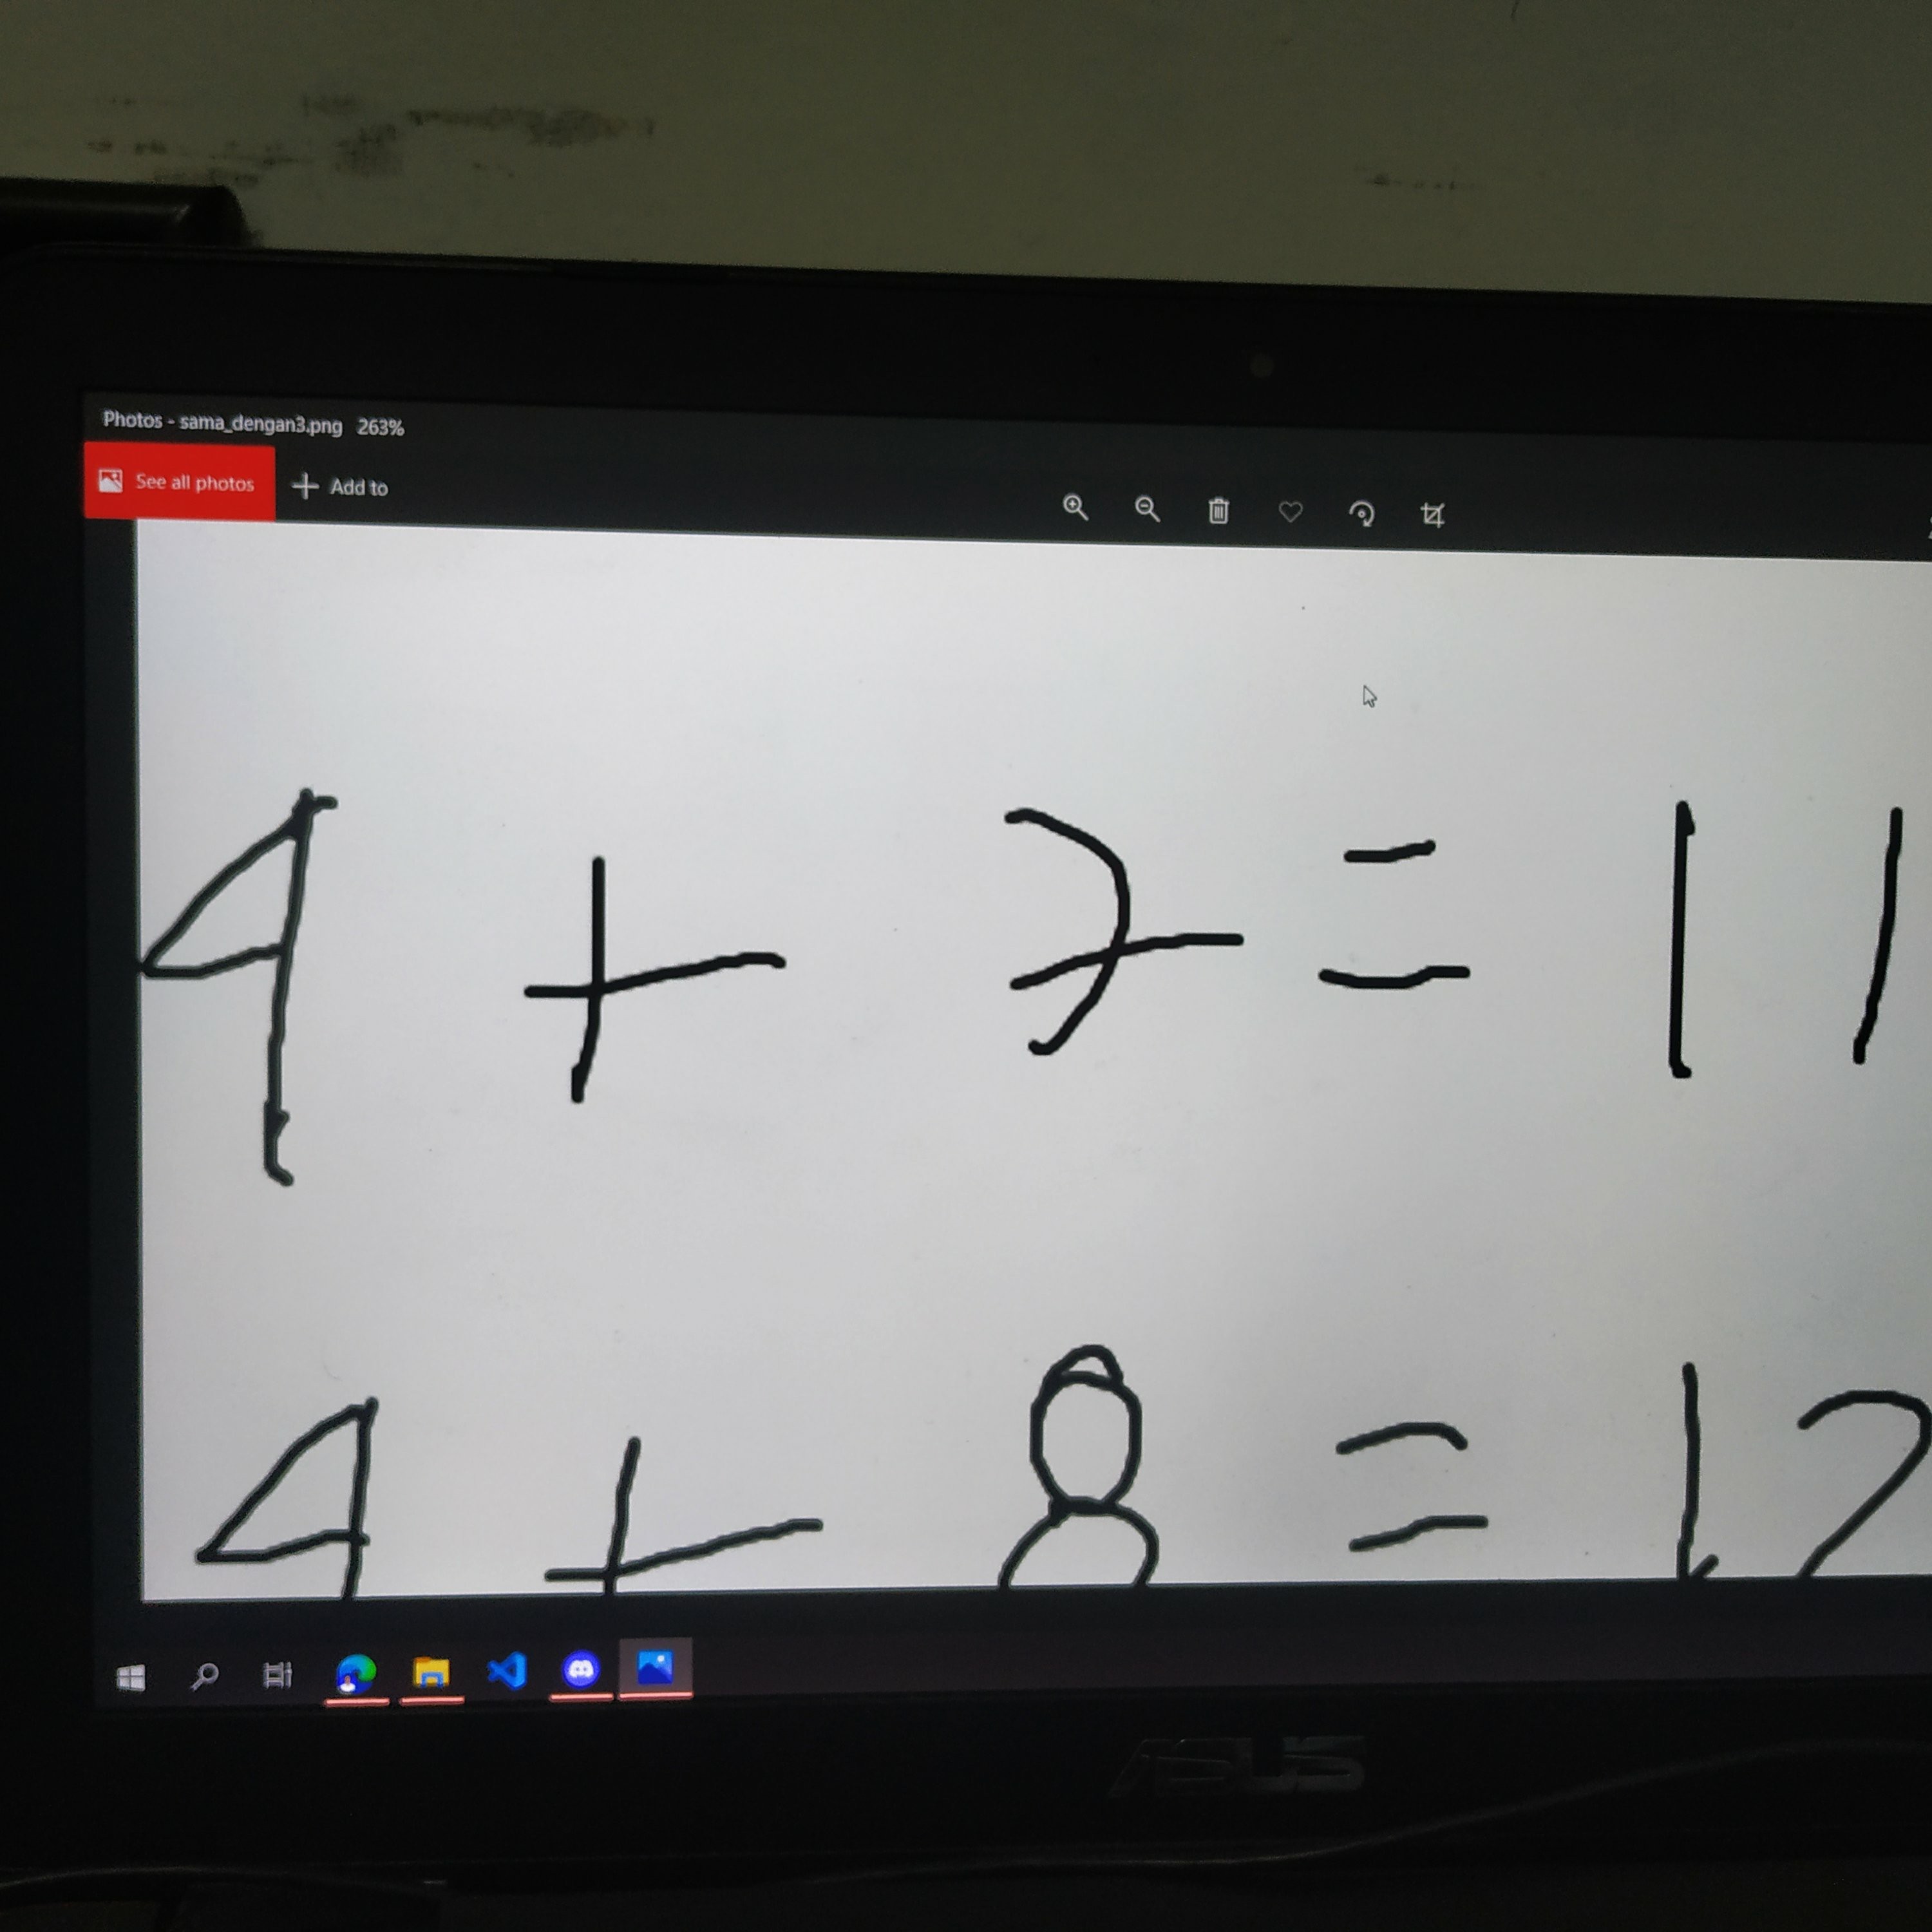 Photos - sama_dengan3.png 263%
See all photos Add to
4 + 7 = 11
4 + 8 = 12
ASUS